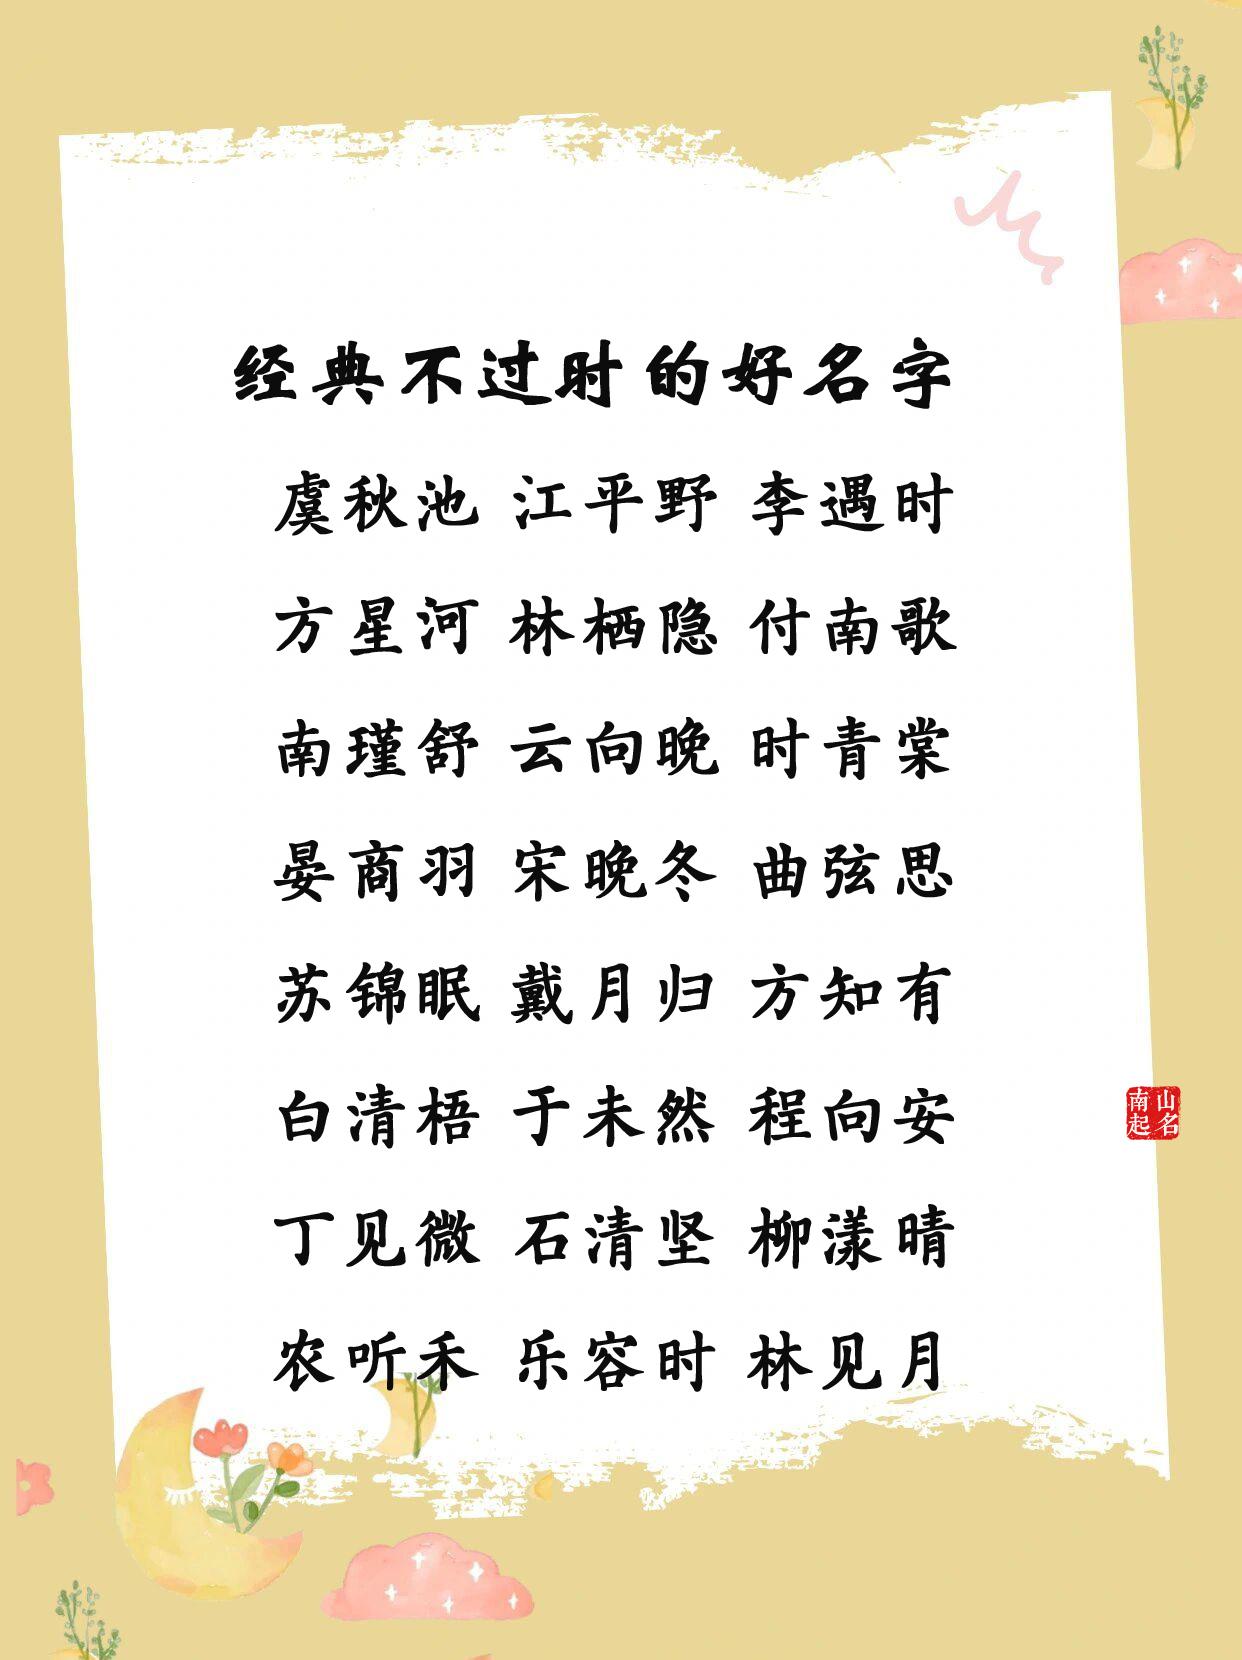 经典不过时的好名字
虞秋池 江平野 李遇时
方星河 林栖隐 付南歌
南瑾舒 云向晚 时青棠
晏商羽 宋晚冬 曲弦思
苏锦眠 戴月归 方知有
白清梧 于未然 程向安
南山起名
丁见微 石清坚 柳漾晴
农听禾 乐容时 林见月